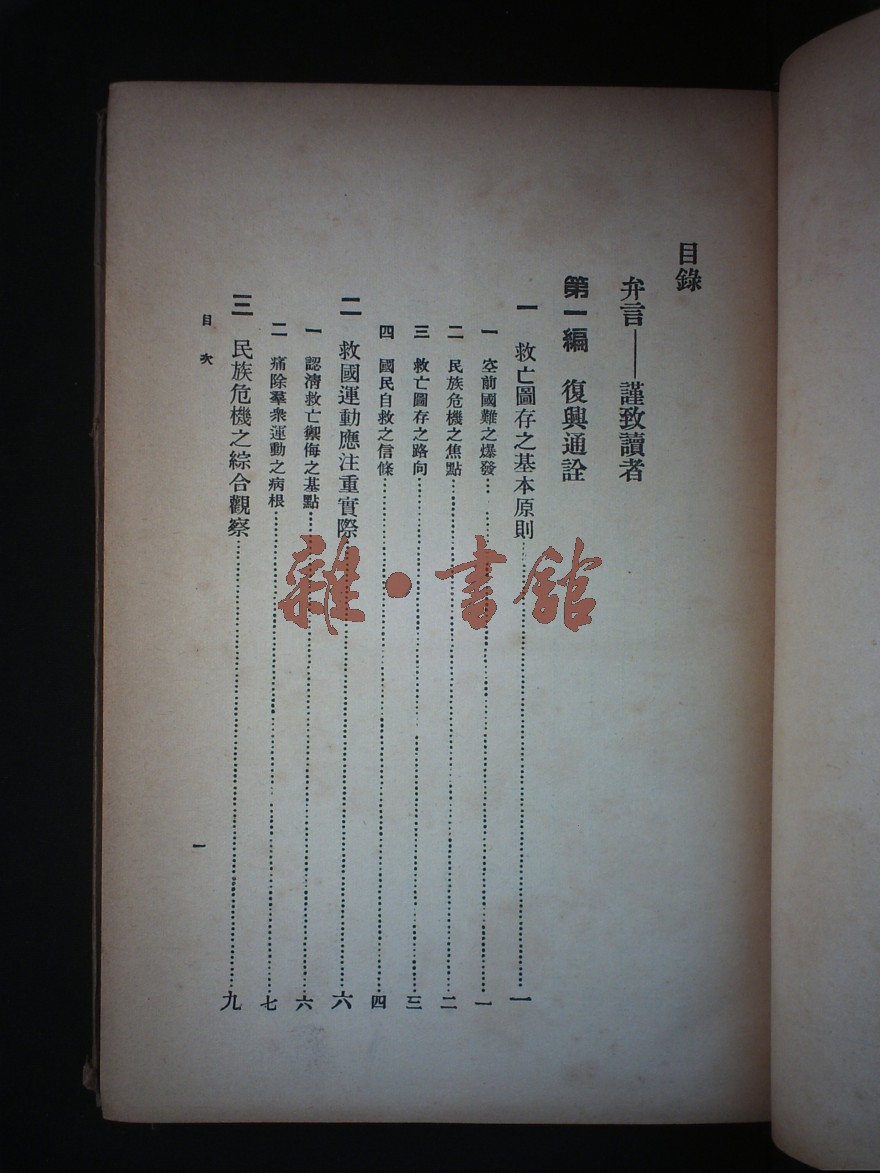 目錄
弁言——謹致讀者
第一編 復興通詮
一 救亡圖存之基本原則……一
一 空前國難之爆發……一
二 民族危機之焦點……二
三 救亡圖存之路向……三
四 國民自救之信條……四
二 救國運動應注重實際……六
一 認清救亡禦侮之基點……六
二 痛除羣衆運動之病根……七
三 民族危機之綜合觀察……九
目次
一
雜·書館